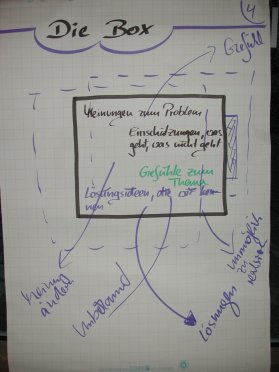 4
Die Box
Gefühl
Meinungen zum Problem
Einschätzungen, was
geht, was nicht geht
Gefühle zum
Thema
Lösungsideen, die wir ken-
nen
Meinung
ändern
Umstand
Lösungen
unmöglich
zu